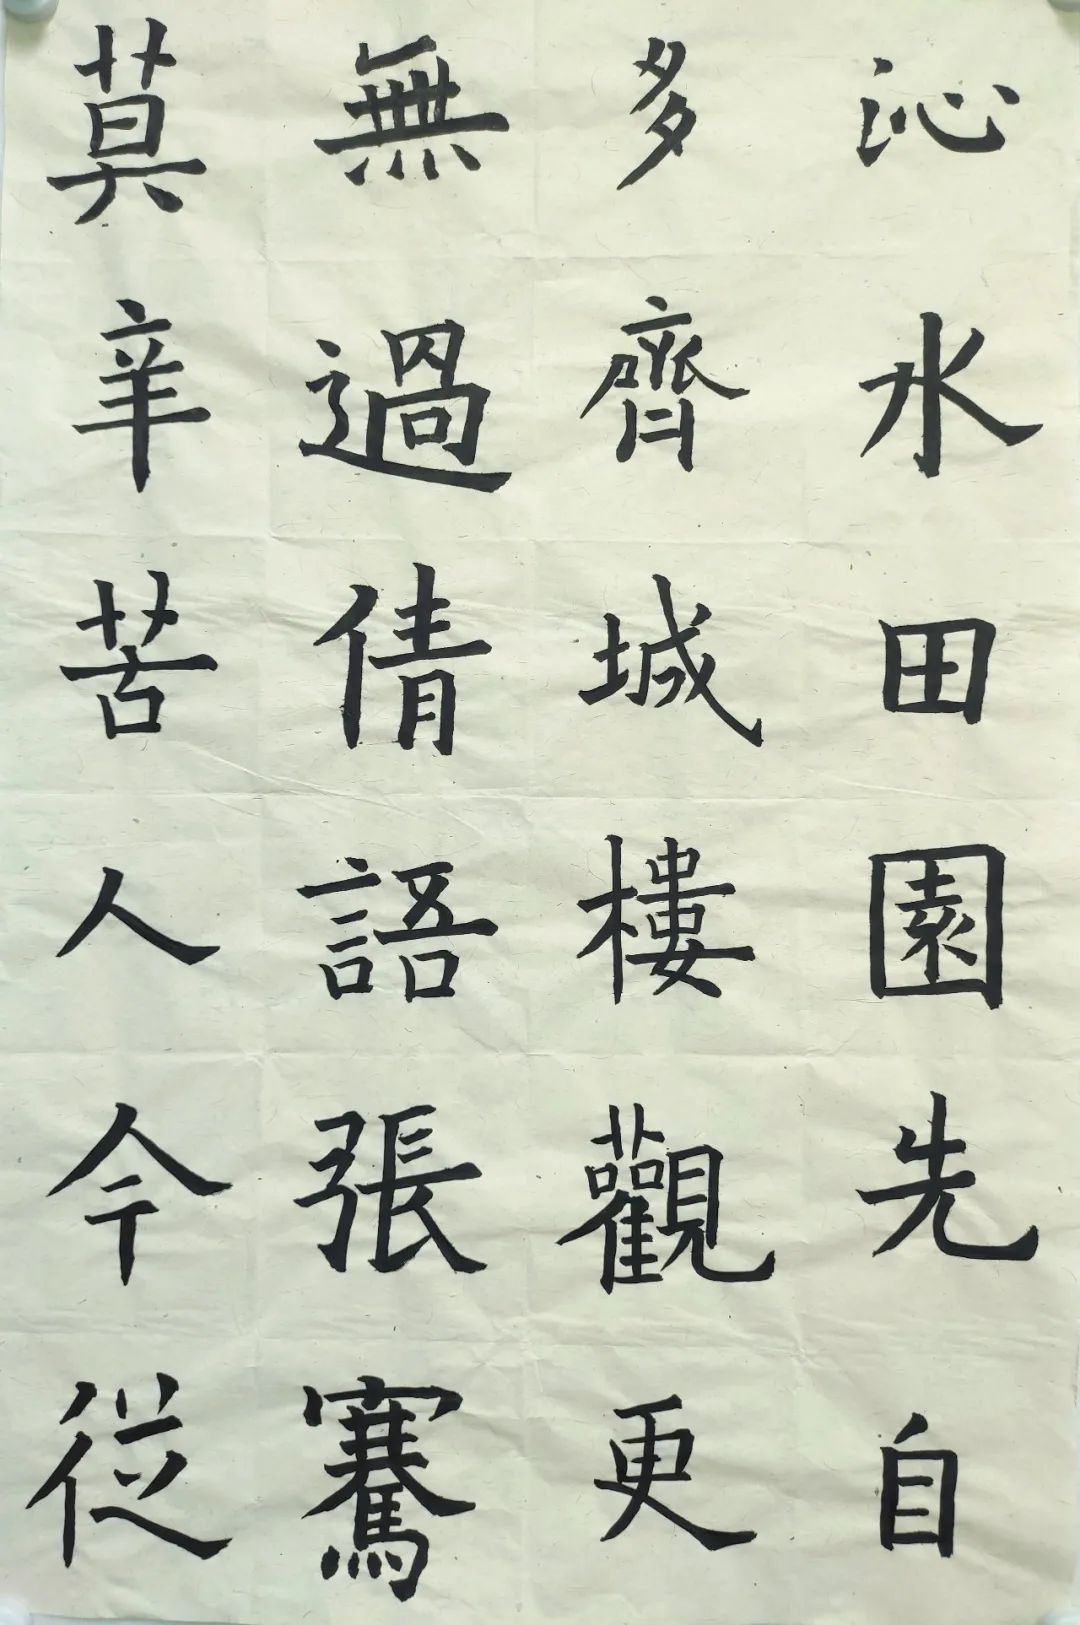 沁水田園先自
多齊城樓觀更
無過倩語張騫
莫辛苦人今從